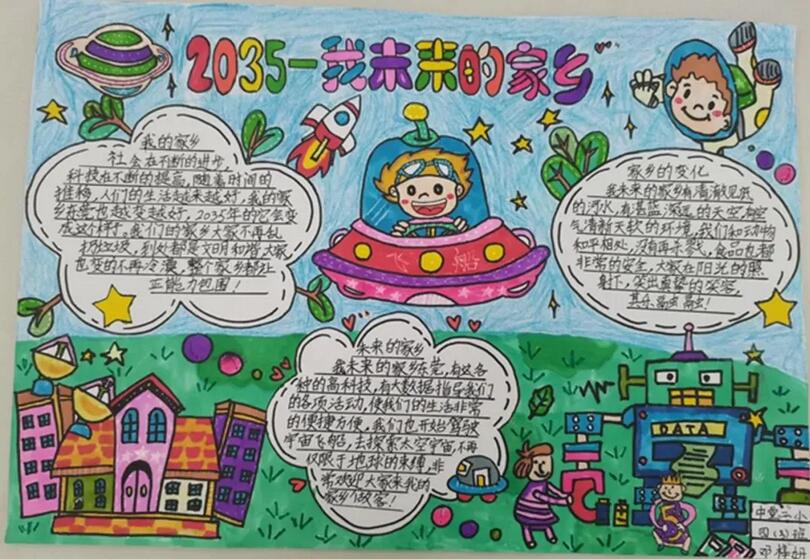 2035—我未来的家乡
我的家乡
社会在不断的进步,
科技在不断的提高,随着时间的
推移,人们的生活越来越好,我的家
乡东莞也越变越好,2035年的它会变
成这个样子,我们的家乡大家不再乱
扔垃圾,到处都是文明和谐,大家
也变的不再冷漠,整个家乡都让
正能力包围!
飞 船
家乡的变化
我未来的家乡有清澈见底
的河水,有湛蓝深远的天空,有空
气清新天软的环境,我们和动物
和平相处,没有再杀戮,食品也都
非常的安全,大家在阳光的照
射下,笑出真挚的笑容,
其乐
未来的家乡
我未来的家乡东莞,有这各
种的高科技,有大数据指导我们
的各项活动,使我们的生活非常
的便捷方便,我们也开始驾驶
宇宙飞船,去探索太空宇宙,不再
仅限于地球的束缚,非
常欢迎大家来我的
家乡做客!
DATA
中堂三小
四(3)班
邓